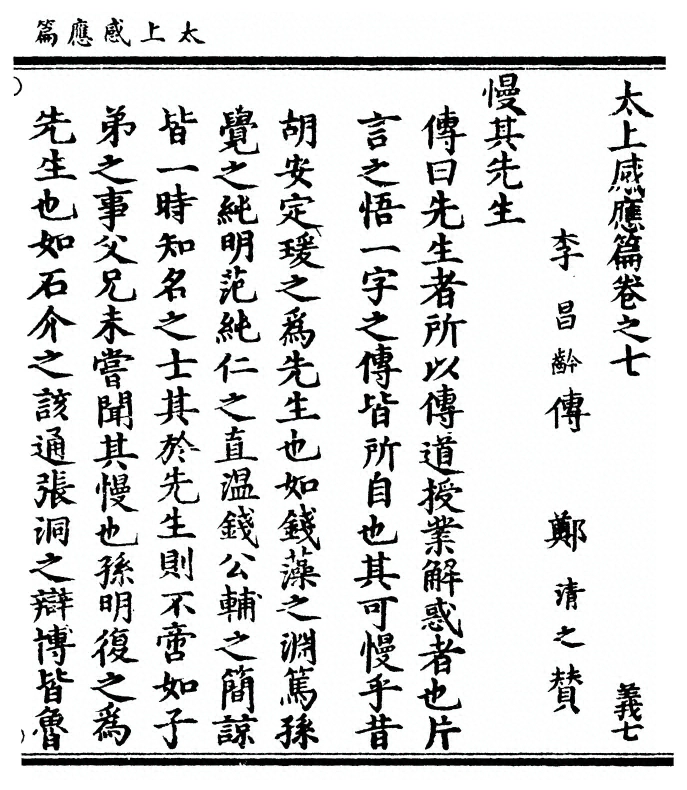 太上感應篇
太上感應篇卷之七
義七
李昌齡傳 鄭清之贊
慢其先生
傳曰先生者所以傳道授業解惑者也片
言之悟一字之傳皆所自也其可慢乎昔
胡安定瑗之爲先生也如錢藻之淵篤孫
覺之純明范純仁之直温錢公輔之簡諒
皆一時知名之士其於先生則不啻如子
弟之事父兄未嘗聞其慢也孫明復之爲
先生也如石介之該通張洞之辯博皆魯